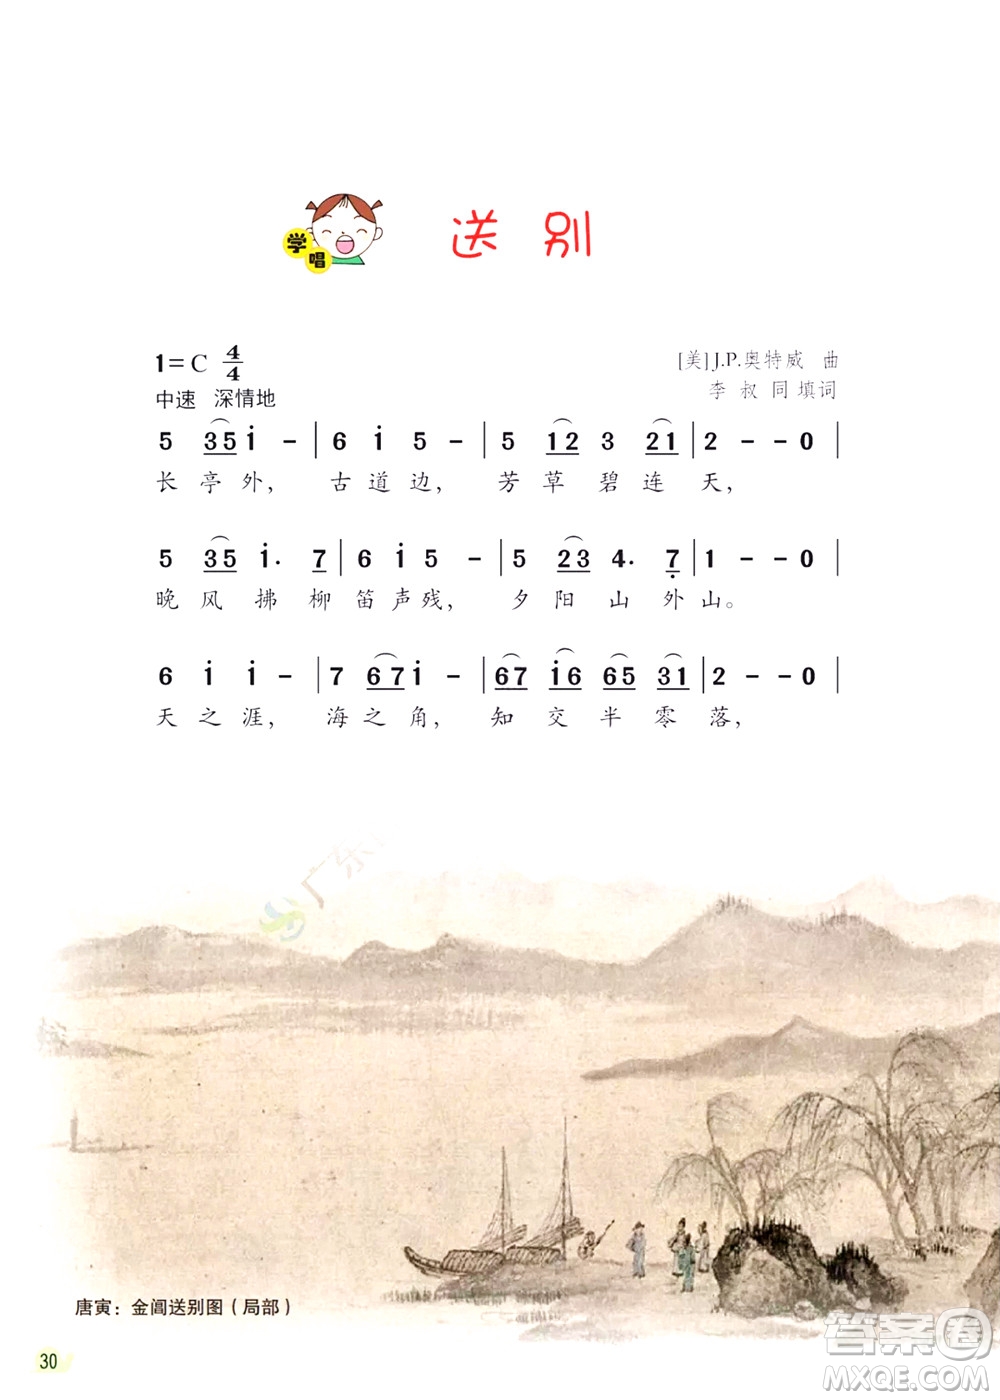 学唱
送别
1=C 4/4
[美]J.P.奥特威 曲
中速 深情地
李叔同填词
5 35 i - | 6 i 5 - | 5 12 3 21 | 2 - - 0 |
长亭外, 古道边, 芳草碧连天,
5 35 i. 7 | 6 i 5 - | 5 23 4. 7̣ | 1 - - 0 |
晚风拂柳笛声残, 夕阳山外山。
6 i i - | 7 67 i - | 67 i6 65 31 | 2 - - 0 |
天之涯, 海之角, 知交半零落,
广东
唐寅：金阊送别图（局部）
30
答案圈
MXQE.COM